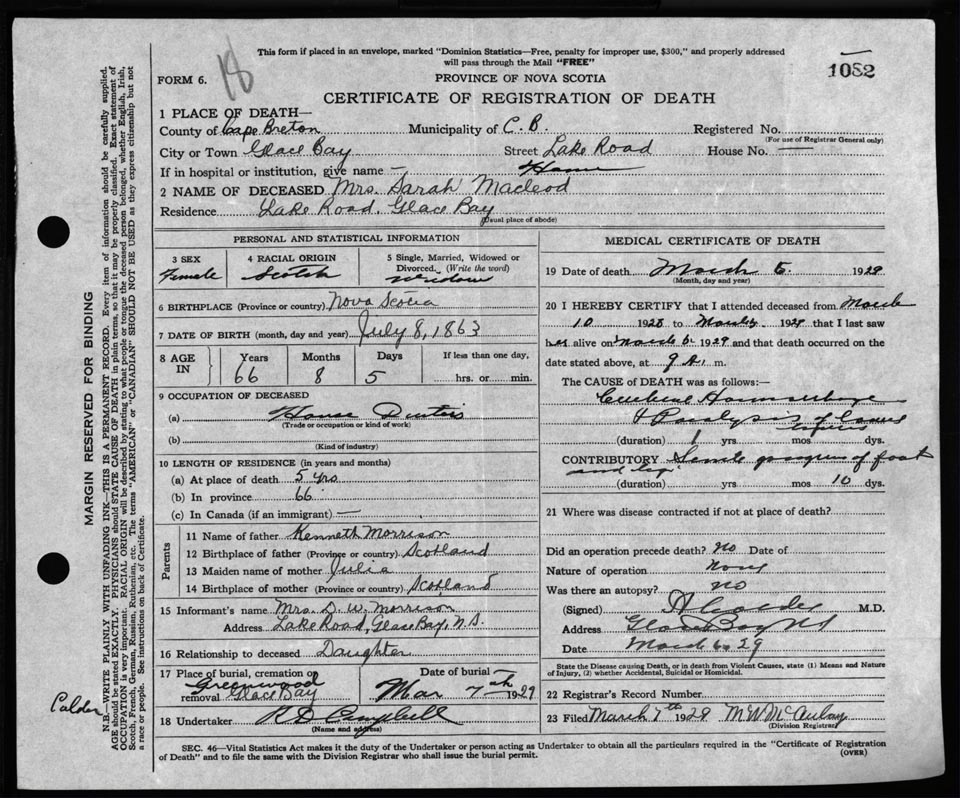 This form if placed in an envelope, marked "Dominion Statistics—Free, penalty for improper use, $300," and properly addressed
will pass through the Mail "FREE"
18
1082
FORM 6.
PROVINCE OF NOVA SCOTIA
CERTIFICATE OF REGISTRATION OF DEATH
1 PLACE OF DEATH—
County of Cape Breton Municipality of C. B. Registered No.
(For use of Registrar General only)
City or Town Glace Bay Street Lake Road House No. —
If in hospital or institution, give name — Home
2 NAME OF DECEASED Mrs. Sarah Macleod
Residence Lake Road, Glace Bay
(Usual place of abode)
PERSONAL AND STATISTICAL INFORMATION
3 SEX Female
4 RACIAL ORIGIN Scotch
5 Single, Married, Widowed or
Divorced. (Write the word)
widow
6 BIRTHPLACE (Province or country) Nova Scotia
7 DATE OF BIRTH (month, day and year) July 8, 1863
8 AGE IN Years Months Days If less than one day,
66 8 5 hrs. or min.
9 OCCUPATION OF DECEASED
(a) House Duties
(Trade or occupation or kind of work)
(b)
(Kind of industry)
10 LENGTH OF RESIDENCE (in years and months)
(a) At place of death 5 yrs
(b) In province 66
(c) In Canada (if an immigrant) —
Parents
11 Name of father Kenneth Morrison
12 Birthplace of father (Province or country) Scotland
13 Maiden name of mother Julia
14 Birthplace of mother (Province or country) Scotland
15 Informant's name Mrs. D. W. Morrison
Address Lake Road, Glace Bay, N.S.
16 Relationship to deceased Daughter
17 Place of burial, cremation or
removal Greenwood
Glace Bay
Date of burial
Mar 7th 1929
18 Undertaker Campbell
(Name and address)
MEDICAL CERTIFICATE OF DEATH
19 Date of death March 6. 1929
(Month, day and year)
20 I HEREBY CERTIFY that I attended deceased from March
10 1928 to March 1929 that I last saw
her alive on March 6 1929 and that death occurred on the
date stated above, at 9 a. m.
The CAUSE of DEATH was as follows:—
Cerebral Haemorrhage
& Paralysis of Lower
(duration) 1 yrs. mos. dys.
CONTRIBUTORY Senile gangrene of foot
and leg
(duration) yrs. mos 10 dys.
21 Where was disease contracted if not at place of death?
Did an operation precede death? no Date of
Nature of operation None
Was there an autopsy? no
(Signed) M.D.
Address Glace Bay NS
Date March 6 29
State the Disease causing Death, or in death from Violent Causes, state (1) Means and Nature
of Injury, and (2) whether Accidental, Suicidal or Homicidal.
22 Registrar's Record Number
23 Filed March 7th 1929 McAulay
(Division Registrar)
SEC. 46—Vital Statistics Act makes it the duty of the Undertaker or person acting as Undertaker to obtain all the particulars required in the "Certificate of Registration
of Death" and to file the same with the Division Registrar who shall issue the burial permit.
(OVER)
MARGIN RESERVED FOR BINDING
N.B.—WRITE PLAINLY WITH UNFADING INK—THIS IS A PERMANENT RECORD. Every item of information should be carefully supplied.
AGE should be stated EXACTLY. PHYSICIANS should STATE CAUSE OF DEATH in plain terms, so that it may be properly classified. Exact statement of
OCCUPATION is very important. RACIAL ORIGIN will be described by stating to what people or tongue the deceased person belonged, whether English, Irish,
Scotch, French, German, Russian, Ruthenian, etc. The terms "AMERICAN" or "CANADIAN" SHOULD NOT BE USED as they express citizenship but not
a race or people. See instructions on back of Certificate.
Calder